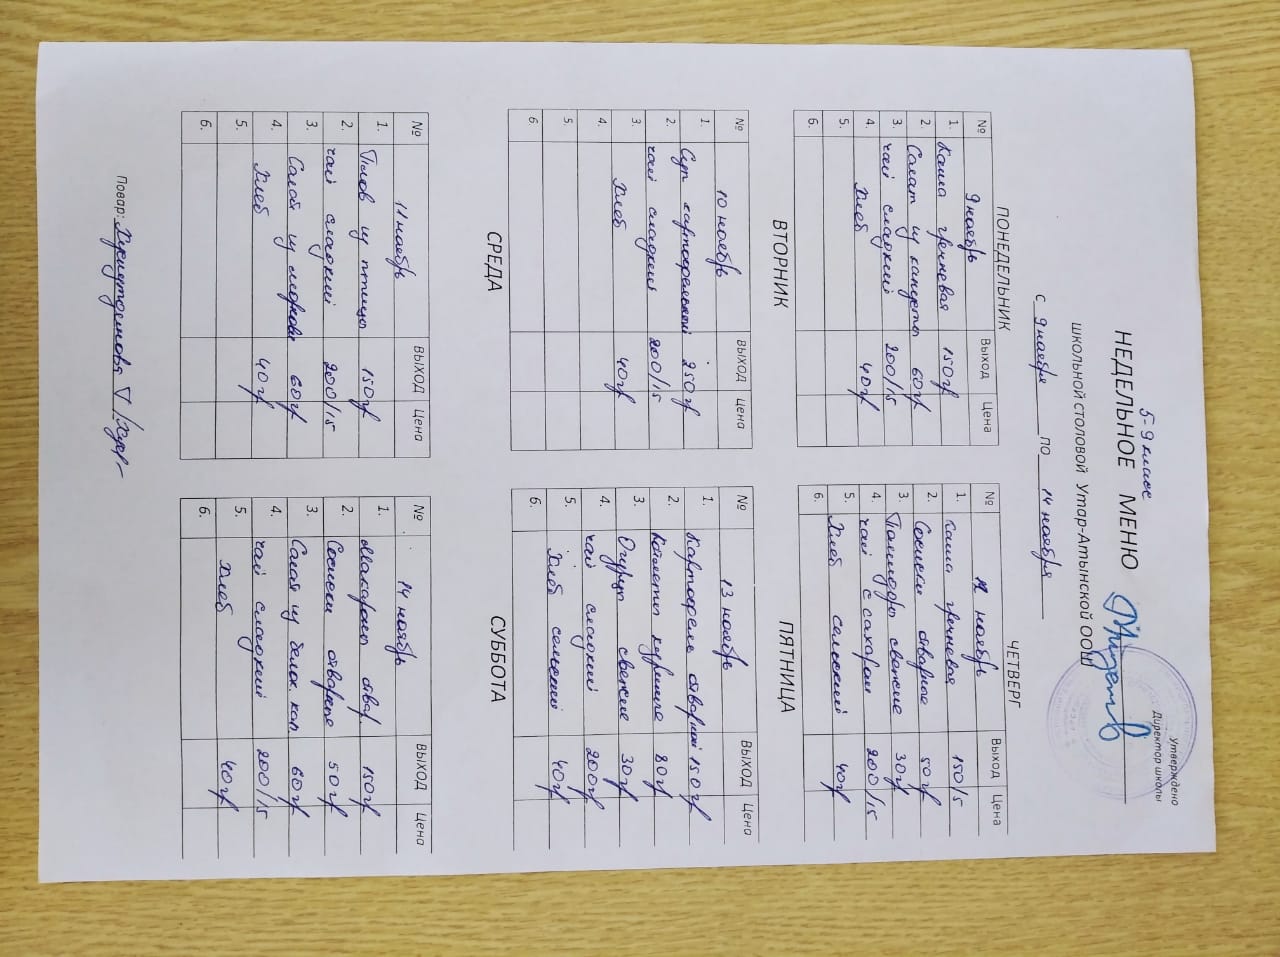 Утверждено
Директор школы
5-9 класс
НЕДЕЛЬНОЕ МЕНЮ
школьной столовой Утар-Атынской ООШ
с 9 ноября по 14 ноября
ПОНЕДЕЛЬНИК
№ 9 ноябрь Выход Цена
1. Каша гречневая 150гр
2. Салат из капусты 60гр
3. чай сладкий 200/15
4. Хлеб 40гр
5.
6.
ВТОРНИК
№ 10 ноябрь Выход Цена
1. Суп картофельный 250гр
2. чай сладкий 200/15
3. Хлеб 40гр
4.
5.
6
СРЕДА
№ 11 ноябрь Выход Цена
1. Плов из птицы 150гр
2. чай сладкий 200/15
3. Салат из моркови 60гр
4. Хлеб 40гр
5.
6.
ЧЕТВЕРГ
№ 12 ноябрь Выход Цена
1. Каша гречневая 150/5
2. Сосиски отварные 50гр
3. Помидоры свежие 30гр
4. чай с сахаром 200/15
5. Хлеб сельский 40гр
6.
ПЯТНИЦА
№ 13 ноябрь Выход Цена
1. Картофель отварной 150гр
2. Котлеты куриные 80гр
3. Огурцы свежие 30гр
4. чай сладкий 200гр
5. Хлеб сельский 40гр
6.
СУББОТА
№ 14 ноябрь Выход Цена
1. Макароны отвар. 150гр
2. Сосиски отварные 50гр
3. Салат из белок. кап. 60гр
4. чай сладкий 200/15
5. Хлеб 40гр
6.
Повар: